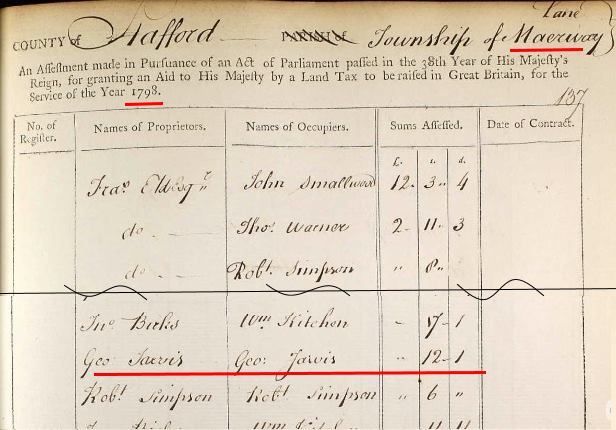 Lane
COUNTY of Stafford PARISH of Township of Maerway
An Assessment made in Pursuance of an Act of Parliament passed in the 38th Year of His Majesty's
Reign, for granting an Aid to His Majesty by a Land Tax to be raised in Great Britain, for the
Service of the Year 1798.
137
No. of Register. Names of Proprietors. Names of Occupiers. Sums Assessed. Date of Contract.
£. s. d.
Fras Esqr John Smallwood 12 3 4
do Thos Warner 2 11 3
do Robt Simpson " 8 "
Jno Birks Wm Kitchen - 17 1
Geo Jarvis Geo: Jarvis " 12 1
Robt Simpson Robt Simpson " 6 "
Wm Kitchen " 11 11